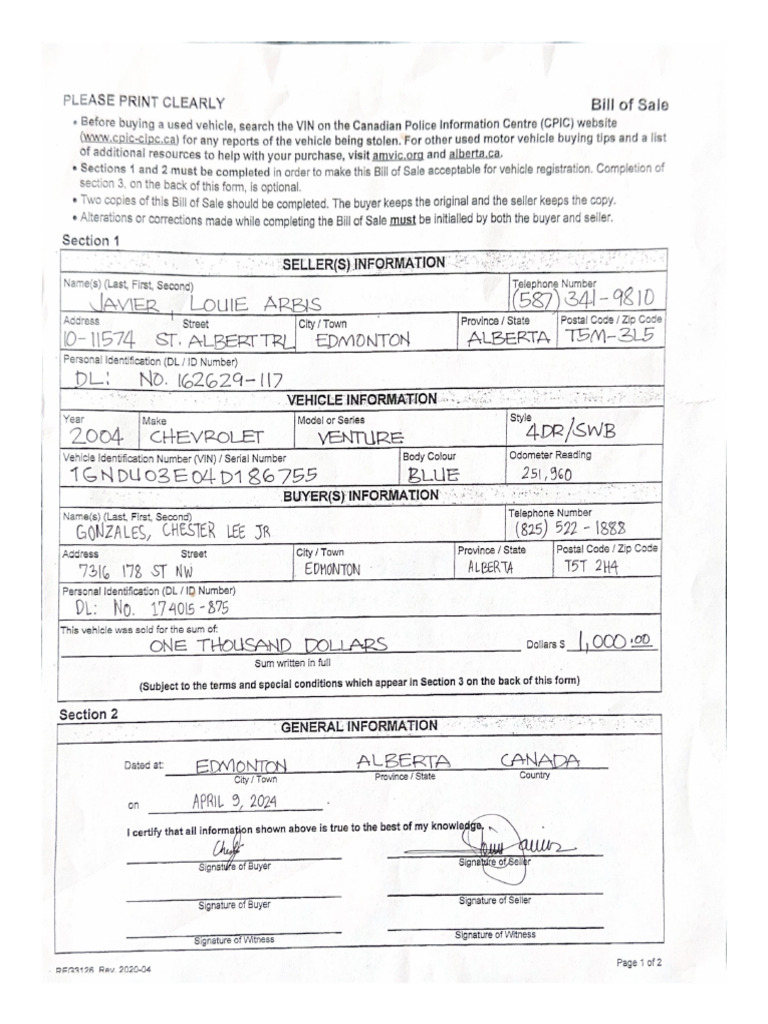 PLEASE PRINT CLEARLY
Bill of Sale
• Before buying a used vehicle, search the VIN on the Canadian Police Information Centre (CPIC) website
(www.cpic-cipc.ca) for any reports of the vehicle being stolen. For other used motor vehicle buying tips and a list
of additional resources to help with your purchase, visit amvic.org and alberta.ca.
• Sections 1 and 2 must be completed in order to make this Bill of Sale acceptable for vehicle registration. Completion of
section 3, on the back of this form, is optional.
• Two copies of this Bill of Sale should be completed. The buyer keeps the original and the seller keeps the copy.
• Alterations or corrections made while completing the Bill of Sale must be initialled by both the buyer and seller.
Section 1
SELLER(S) INFORMATION
Name(s) (Last, First, Second) Telephone Number
JAVIER, LOUIE ARBIS (587) 341-9810
Address Street City / Town Province / State Postal Code / Zip Code
10-11574 ST. ALBERT TRL EDMONTON ALBERTA T5M-3L5
Personal Identification (DL / ID Number)
DL: NO. 162629-117
VEHICLE INFORMATION
Year Make Model or Series Style
2004 CHEVROLET VENTURE 4DR/SWB
Vehicle Identification Number (VIN) / Serial Number Body Colour Odometer Reading
1GNDU03E04D186755 BLUE 251,960
BUYER(S) INFORMATION
Name(s) (Last, First, Second) Telephone Number
GONZALES, CHESTER LEE JR (825) 522-1888
Address Street City / Town Province / State Postal Code / Zip Code
7316 178 ST NW EDMONTON ALBERTA T5T 2H4
Personal Identification (DL / ID Number)
DL: No. 174015-875
This vehicle was sold for the sum of:
ONE THOUSAND DOLLARS Dollars $ 1,000.00
Sum written in full
(Subject to the terms and special conditions which appear in Section 3 on the back of this form)
Section 2
GENERAL INFORMATION
Dated at: EDMONTON ALBERTA CANADA
City / Town Province / State Country
on APRIL 9, 2024
I certify that all information shown above is true to the best of my knowledge.
Signature of Buyer Signature of Seller
Signature of Buyer Signature of Seller
Signature of Witness Signature of Witness
REG3126 Rev. 2020-04 Page 1 of 2